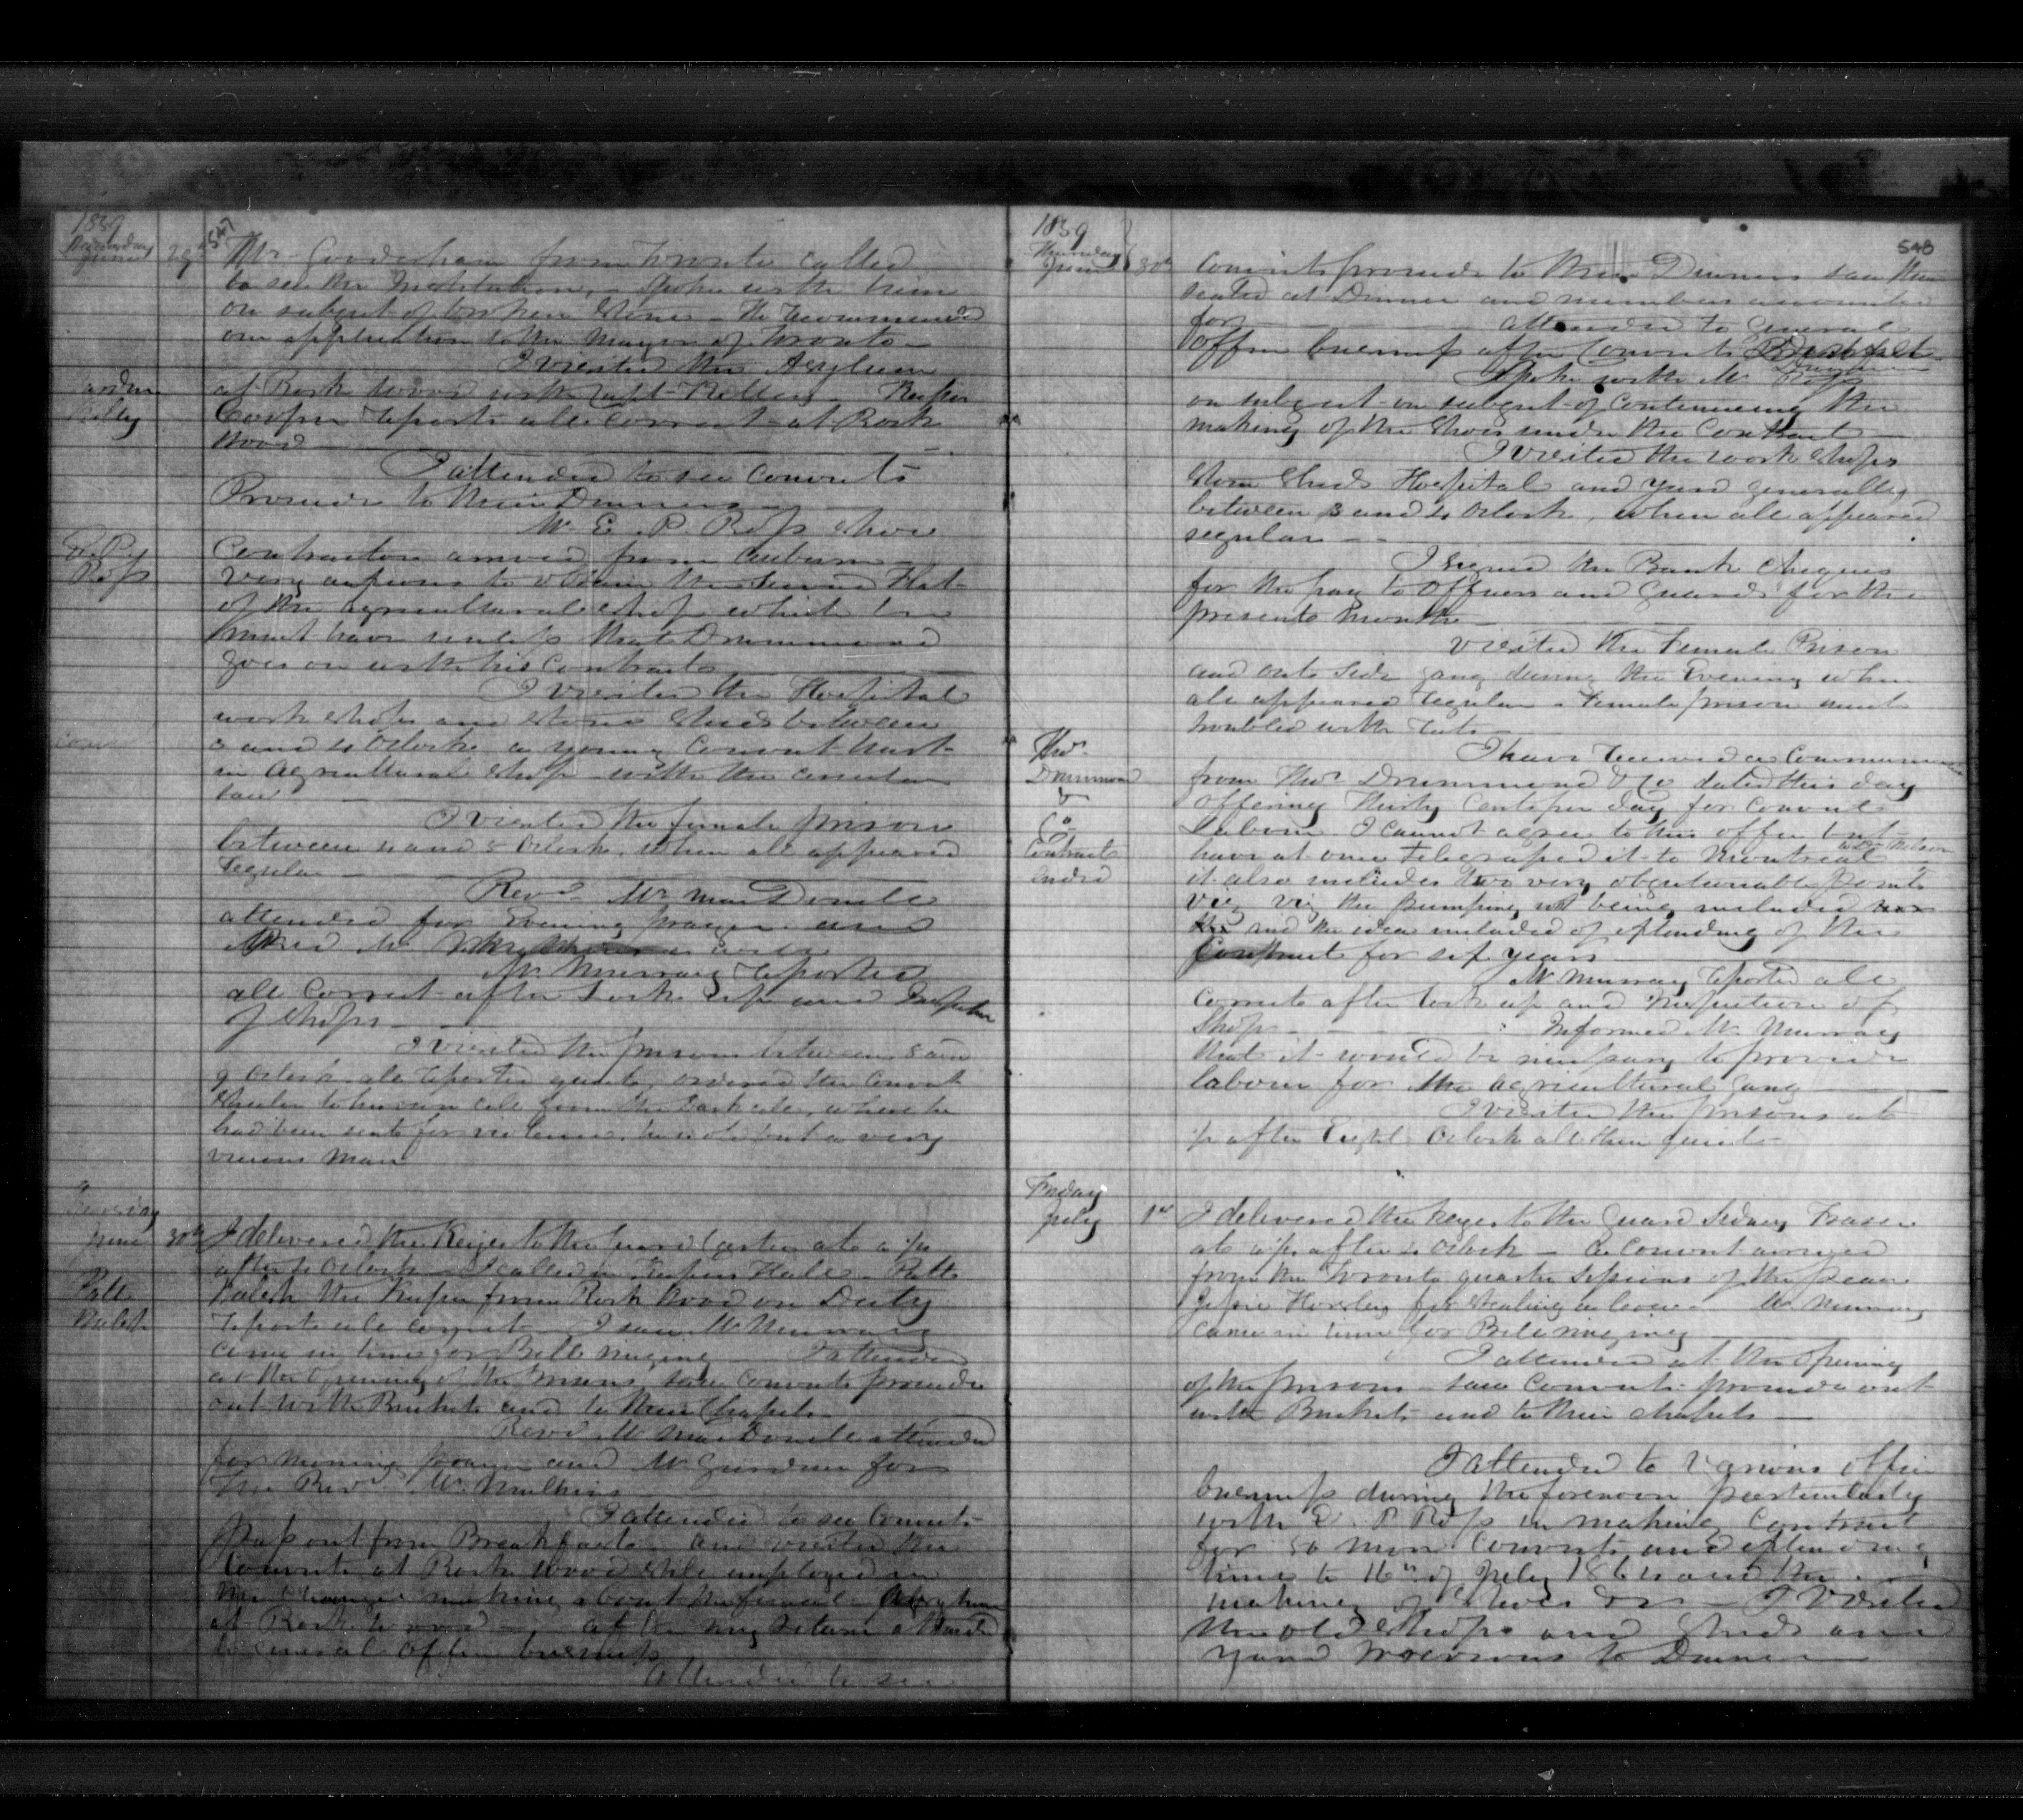 1859
Wednesday
June
29th
547
Mr. Gooderham from Toronto called
to see the Institution, - Spoke with him
on subject of broken Stones - He recommends
an application to the Mayor of Toronto -
I visited the Asylum
at Rock Wood with Capt Keeper
Cooper reports all correct at Rock
Wood
I attended to see Convicts
Proceed to their Dinners
Mr E. P. Ross Shoe
E. P.
Ross
Contractor arrived from Auburn
very anxious to obtain the Second Flat
of the agricultural shop which he
must have unless that Drummond
goes on with his Contract
I visited the Hospital
work shops and stone sheds between
3 and 4 Oclock a young Convict hurt
in Agricultural Shop with the circular
saw
I visited the female prison
between 4 and 5 Oclock when all appeared
regular
Revd Mr MacDonell
attended for Evening prayer and
Mr Murray reported
all Correct after Lock up and Inspection
of Shops
I visited the prisons between 8 and
9 Oclock all reported quiet, ordered the Convict
to his own cell from the dark cell, where he
had been sent for violence, he is old but a very
vicious man
Thursday
June
30th
I delivered the Keys to the Guard at a ¼
after 4 Oclock - I called in Keepers Hall - Patt
Patt
Walsh
Walsh the Keeper from Rock Wood on Duty
reports all correct - I saw Mr Murray
came in time for Bell ringing - I attended
at the Opening of the Prisons, saw Convicts proceed
out with Buckets and to their Chapels
Revd Mr MacDonell attended
for morning prayer and Mr Gardner for
the Revd Mr Mulkins
I attended to see Convicts
pass out from Breakfast - and visited the
Convicts at Rock Wood still employed in
the Changes making about the female Asylum
at Rock Wood - at my return attended
to General office business
Attended to see
1859
Thursday
June
30th
548
Convicts proceed to their Dinners saw them
seated at Dinner and numbers accounted
for - attended to General
Office business after Convicts Breakfast
Dinner
Spoke with Mr Ross
on subject on subject of Continuing the
making of the Shoes under the Contract
I visited the work Shops
Stone Sheds Hospital and yard generally
between 3 and 4 Oclock, when all appeared
regular -
I signed the Bank Cheques
for the pay to Officers and Guards for the
present month
visited the Female Prison
and out side gang during the Evening when
all appeared regular - Female prison much
troubled with
Thos
Drummond
&
Co
Contract
ended
I have received a Communication
from Thos Drummond & Co dated this day
offering thirty Cents per day for Convict
Labour I cannot agree to this offer but
have at once Telegraphed it to Montreal
to Dr Nelson
it also includes two very objectionable points
viz viz the pumping not being included
and the idea included of extending of the
Contract for six years
Mr Murray reported all
Correct after lock up and Inspection of
Shops - Informed Mr Murray
that it would be necessary to provide
labour for the agricultural Gang
I visited the prisons at
½ after Eight Oclock all then quiet -
Friday
July
1st
I delivered the keys to the Guard Sidney Fraser
at a ¼ after 4 Oclock - a Convict arrived
from the Toronto quarter Sessions of the peace
for stealing a - Mr Murray
came in time for Bell ringing
I attended at the Opening
of the prisons - saw Convicts proceed out
with Buckets and to their chapels -
I attended to various office
business during the forenoon particularly
with E. P Ross in making Contract
for 50 more Convicts and extending
time to 16th of July 1864 and the
making of Shoes &c - I visited
the old Shops and Sheds and
yard previous to Dinner